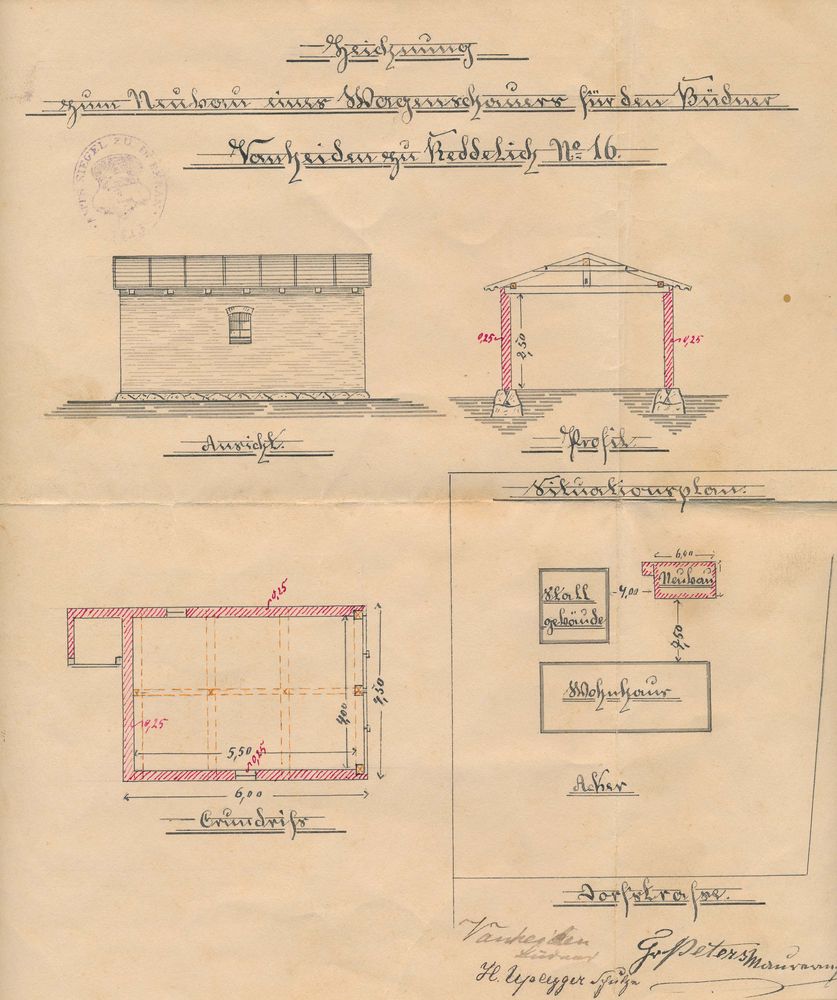 Zeichnung
zum Neubau eines Wagenschauers für den Büdner
Vanheiden zu Reddelich No 16.
Ansicht.
0,25
2,50
0,25
Profil
Situationsplan.
6,00
Neubau
4,00
Stall
gebäude
7,50
Wohnhaus
Acker
Dorfstraße.
0,25
0,25
4,00
4,50
5,50
0,25
6,00
Grundriß
Vanheiden
Büdner
H. Uplegger Schulze
Gr Peters